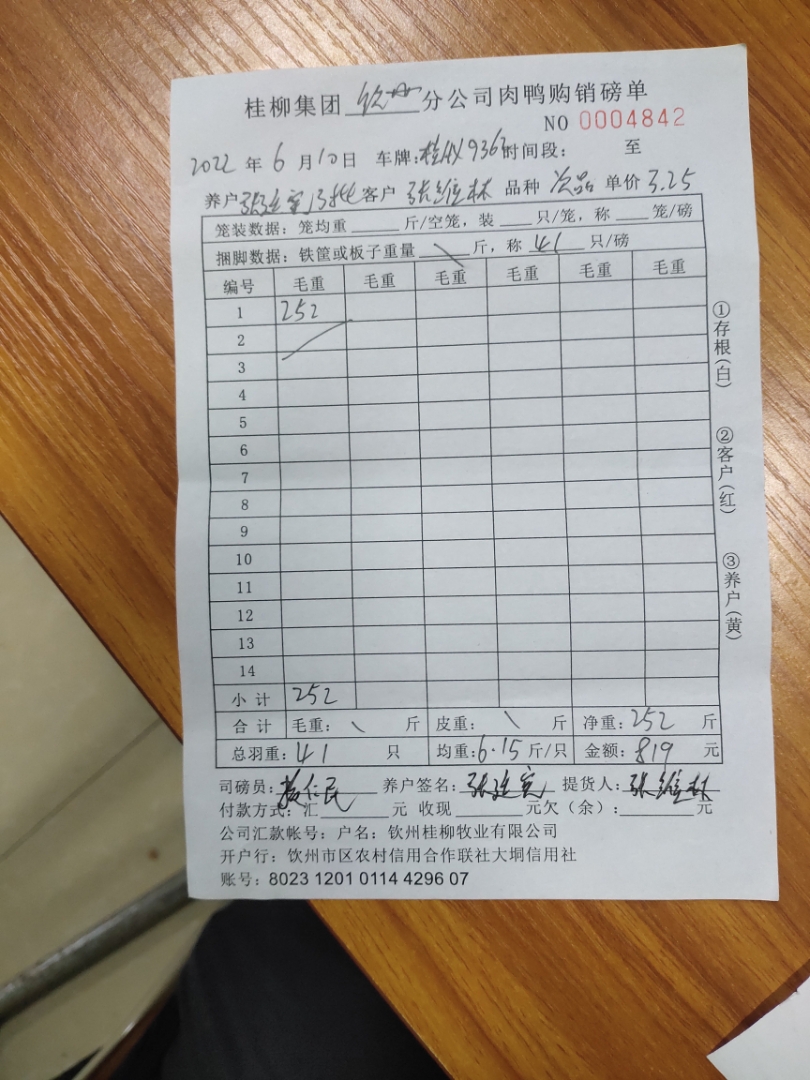 桂柳集团 钦州 分公司肉鸭购销磅单
NO 0004842
2022 年 6 月 10 日 车牌: 时间段: 至
养户 客户 张维林 品种 次品 单价 3.25
笼装数据: 笼均重____斤/空笼, 装____只/笼, 称____笼/磅
捆脚数据: 铁筐或板子重量 \ 斤, 称 41 只/磅
编号 毛重 毛重 毛重 毛重 毛重 毛重
1 252
2
3
4
5
6
7
8
9
10
11
12
13
14
小计 252
合计 毛重: \ 斤 皮重: \ 斤 净重: 252 斤
总羽重: 41 只 均重: 6.15 斤/只 金额: 819 元
司磅员: 养户签名: 提货人: 张维林
付款方式: 汇____元 收现____元欠(余):____元
公司汇款帐号: 户名: 钦州桂柳牧业有限公司
开户行: 钦州市区农村信用合作联社大垌信用社
账号: 8023 1201 0114 4296 07
①存根(白)
②客户(红)
③养户(黄)